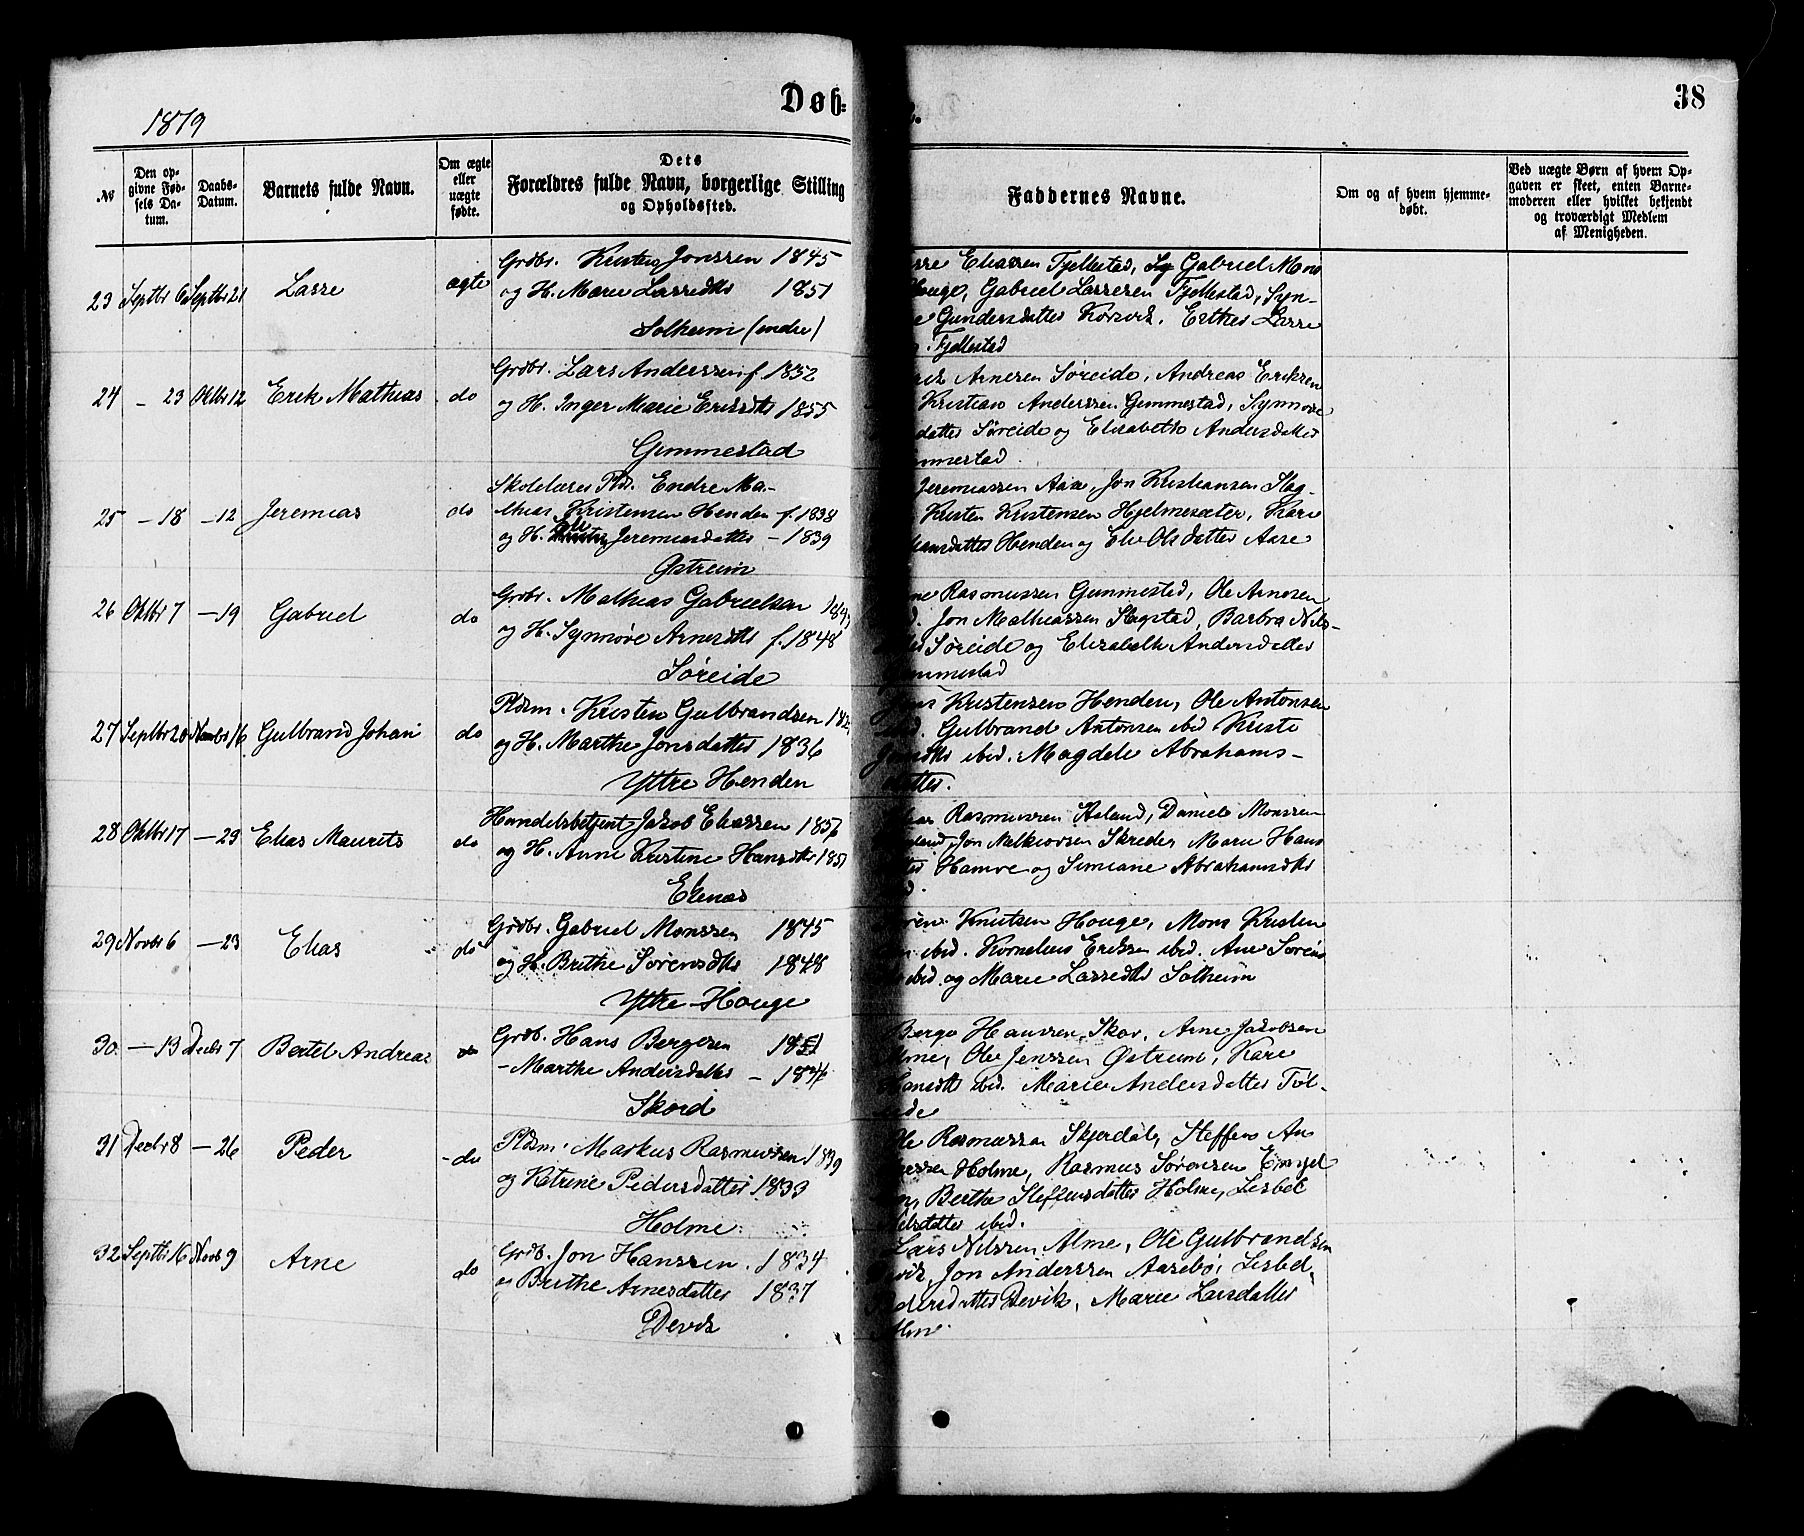 1879
Døb=
38
№
Den op-
givne Fød-
sels Da-
tum.
Daabs-
Datum.
Barnets fulde Navn.
Om ægte
eller
uægte
fødte.
Dets
Forældres fulde Navn, borgerlige Stilling
og Opholdssted.
Faddernes Navne.
Om og af hvem hjemme-
døbt.
Ved uægte Børn af hvem Op-
gaven er skeet, enten Barne-
moderen eller hvilket bekjendt
og troværdigt Medlem
af Menigheden.
23 Septbr 6 Septbr 21 Lasse ægte
Grdbr. Kristen Jonssen 1845
og H. Marie Lassedtr 1851
Solheim (indre)
Eliassen Fjellestad, Gabriel Mons
Houge, Gabriel Lassesen Fjellestad, Syn-
Gundersdatter Korsvik, Esther Lasse
Fjellestad
24 — 23 Oktbr 12 Erik Mathias do
Grdbr. Lars Anderssen f. 1832
og H. Inger Marie Eriksdtr 1855
Gimmestad
Arnesen Søreide, Andreas Eriksen
Kristian Anderssen Gimmestad, Synnøve
datter Søreide og Elisabeth Andersdatter
mmestad
25 — 18 — 12 Jeremias do
Skolelærer Pld. Endre Ma-
thias Kristensen Henden f. 1838
og H. Jeremiasdatter — 1839
Østreim
Jeremiassen Aase, Jon Kristiansen Slag-
Kristen Kristensen Hjelmesæter, Kari
datter Henden og Eli Olsdatter Aase
26 Oktbr 7 — 19 Gabriel do
Grdbr. Mathias Gabrielsen
og H. Synnøve Arnesdtr f. 1848
Søreide
Rasmussen Gimmestad, Ole Arnesen
Jon Mathiassen Slagstad, Barbra Nils-
Søreide og Elisabeth Andersdatter
mmestad
27 Septbr 20 Novbr 16 Gulbrand Johan do
Pldsm. Kristen Gulbrandsen
og H. Marthe Jonsdatter 1836
Yttre Henden
Kristensen Henden, Ole Antonsen
Gulbrand Antonsen ibid Kriste
ibid. Magdele Abrahams-
datter.
28 Oktbr 17 — 29 Elias Maurits do
Handelsbetjent Jakob Eliassen 1856
og H. Anne Kristine Hansdtr 1851
Elenæs
Rasmussen Aaland, Daniel Monssen
Jon Melkiorsen Skreder Marie Hans
Hamre og Simiane Abrahamsdtr
29 Novbr 6 — 23 Elias do
Grdbr. Gabriel Monssen 1845
og H. Brithe Sørensdtr 1848
Yttre Houge
Knutsen Houge, Mons Kristen
ibid. Kornelius Eriksen ibid. Ane Sørens
ibid. og Marie Lassedtr Solheim
30 — 13 Decbr 7 Bertel Andreas do
Grdb. Hans Bergesen
— Marthe Andersdatter — 1846
Skord
Berge Hanssen Skor, Arne Jakobsen
Ole Jenssen Østreim, Kari
Hansdtr ibid. Marie Andersdatter
31 Decbr 8 — 26 Peder — do
Pldsm. Markus Rasmussen 1839
og Katrine Pedersdatter 1833
Holme
Ole Rasmussen Skjerdal, Steffen An
Holme, Rasmus Sørensen
Berthe Steffensdatter Holme, Lisbet
datter ibid.
32 Septbr 16 Novbr 9 Arne do
Grdb. Jon Hanssen 1834
og Brithe Arnesdatter 1837
Devik
Lars Nilssen Alme, Ole Gulbrandsen
Jon Anderssen Aasebø, Lisbet
datter Devik, Marie Larsdatter
Alme.